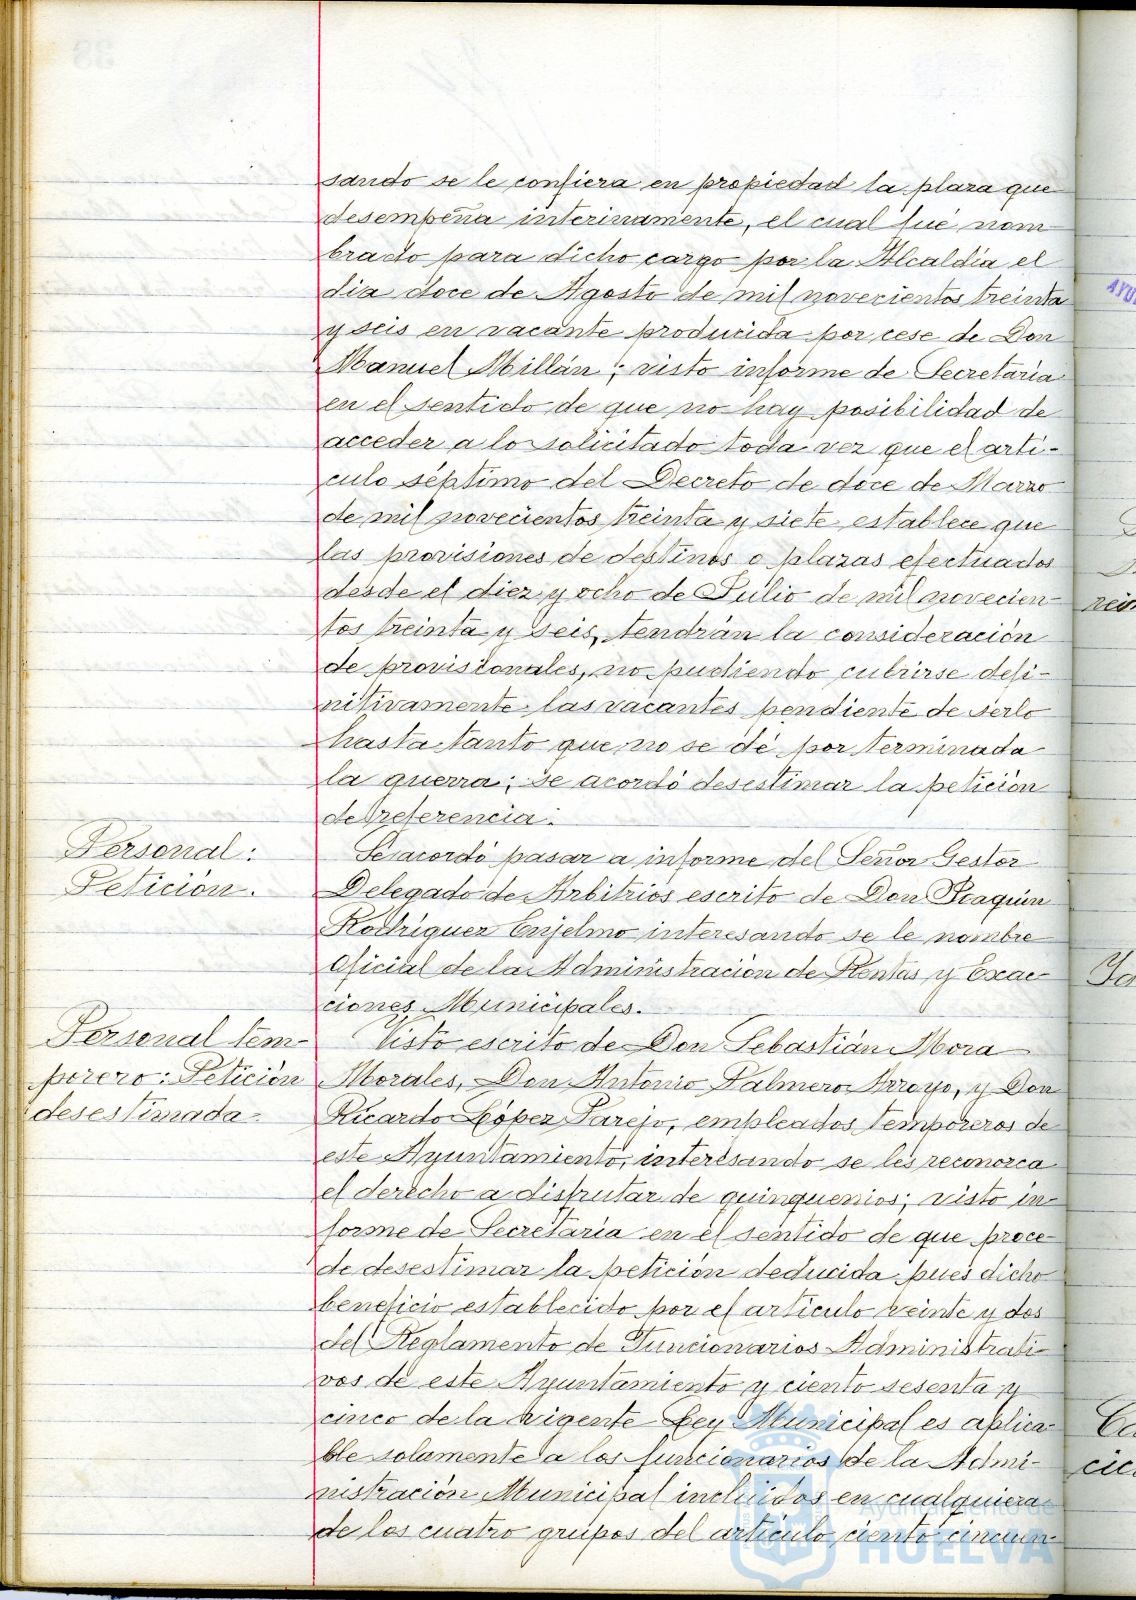 sando se le confiera en propiedad la plaza que
desempeña interinamente, el cual fué nom-
brado para dicho cargo por la Alcaldía el
dia doce de Agosto de mil novecientos treinta
y seis en vacante producida por cese de Don
Manuel Millán; visto informe de Secretaría
en el sentido de que no hay posibilidad de
acceder a lo solicitado toda vez que el artí-
culo séptimo del Decreto de doce de Marzo
de mil novecientos treinta y siete establece que
las provisiones de destinos o plazas efectuados
desde el diez y ocho de Julio de mil novecien-
tos treinta y seis, tendrán la consideración
de provisionales, no pudiendo cubrirse defi-
nitivamente las vacantes pendiente de serlo
hasta tanto que no se dé por terminada
la guerra; se acordó desestimar la petición
de referencia.
Personal:
Petición.
Se acordó pasar a informe del Señor Gestor
Delegado de Arbitrios escrito de Don Joaquín
Rodríguez Enjelmo interesando se le nombre
Oficial de la Administración de Rentas y Exac-
ciones Municipales.
Personal tem-
porero: Petición
desestimada.
Visto escrito de Don Sebastián Mora
Morales, Don Antonio Palmero Arroyo, y Don
Ricardo López Parejo, empleados temporeros de
este Ayuntamiento, interesando se les reconozca
el derecho a disfrutar de quinquenios; visto in-
forme de Secretaría en el sentido de que proce-
de desestimar la petición deducida pues dicho
beneficio establecido por el artículo veinte y dos
del Reglamento de Funcionarios Administrati-
vos de este Ayuntamiento y ciento sesenta y
cinco de la vigente Ley Municipal es aplica-
ble solamente a los funcionarios de la Admi-
nistración Municipal incluidos en cualquiera
de los cuatro grupos del artículo ciento cincuen-
Ayuntamiento de
HUELVA